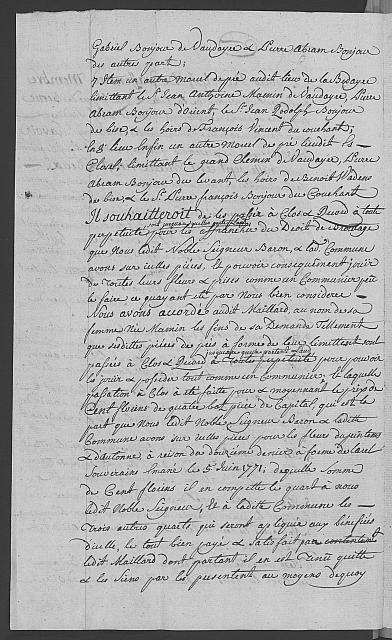 Gabriel Bonjour de Vaudayre & Pierre Abram Bonjour
des autre part;
7 Item un autre morcel de pré audit lieu de la
limittant le Sr. Jean Anthoine Mamin de Vaudayre, Pierre
Abram Bonjour d'orient, le Sr. Jean Rodolph Bonjour
de bise, & les hoirs de François Vincent du couchant;
en 8e lieu Enfin un autre Morcel de pré lieudit Es
Closel, limittant le grand Chemin de Vaudayre, Pierre
Abram Bonjour du levant, les hoirs de Benoit
de bise, & le Sr. Pierre françois Bonjour du Couchant
Il souhaitteroit de les passer à Clos & Record à toute
perpetuité pour les affranchir du Droit de Parcourage
que Nous ledit Noble Seigneur Baron, & lad. Commune
avons sur icelles pièces, & pouvoir consequemment jouir
de toutes leurs fleurs & prises comme un Communier peu
le faire ce quayant été par Nous bien consideré
Nous avons accordé audit Maillard, au nom de sa
femme Née Mamin les fins de sa Demande Tellement
que susdittes pièces de prés à forme de leur limittes sont
passées à Clos & Record à Toute perpetuité pour pouvoir
en jouir & posseder tout comme un Communier; & laquelle
passation à Clos a été faitte pour & moyennant le prix de
Cent florins de quatre batz pièce de Capital, qui est la
part que Nous ledit Noble Seigneur Baron & laditte
Commune avons sur icelles pièces pour les fleurs du printems
& d'autonne, à raison du douzième denier à forme de l'arrêt
Souverain Emané le 5 Juin 1771; de quelle somme
de Cent florins il en compette le quart à nous
ledit Noble Seigneur, & à laditte Commune les
Trois autres quarts, qui seront apliqués aux bénéfices
d'icelle, le tout bien payé & satisfait
ledit Maillard dont partant il en est Tenu quitte
& les Siens par les présentes au moyens dequoy